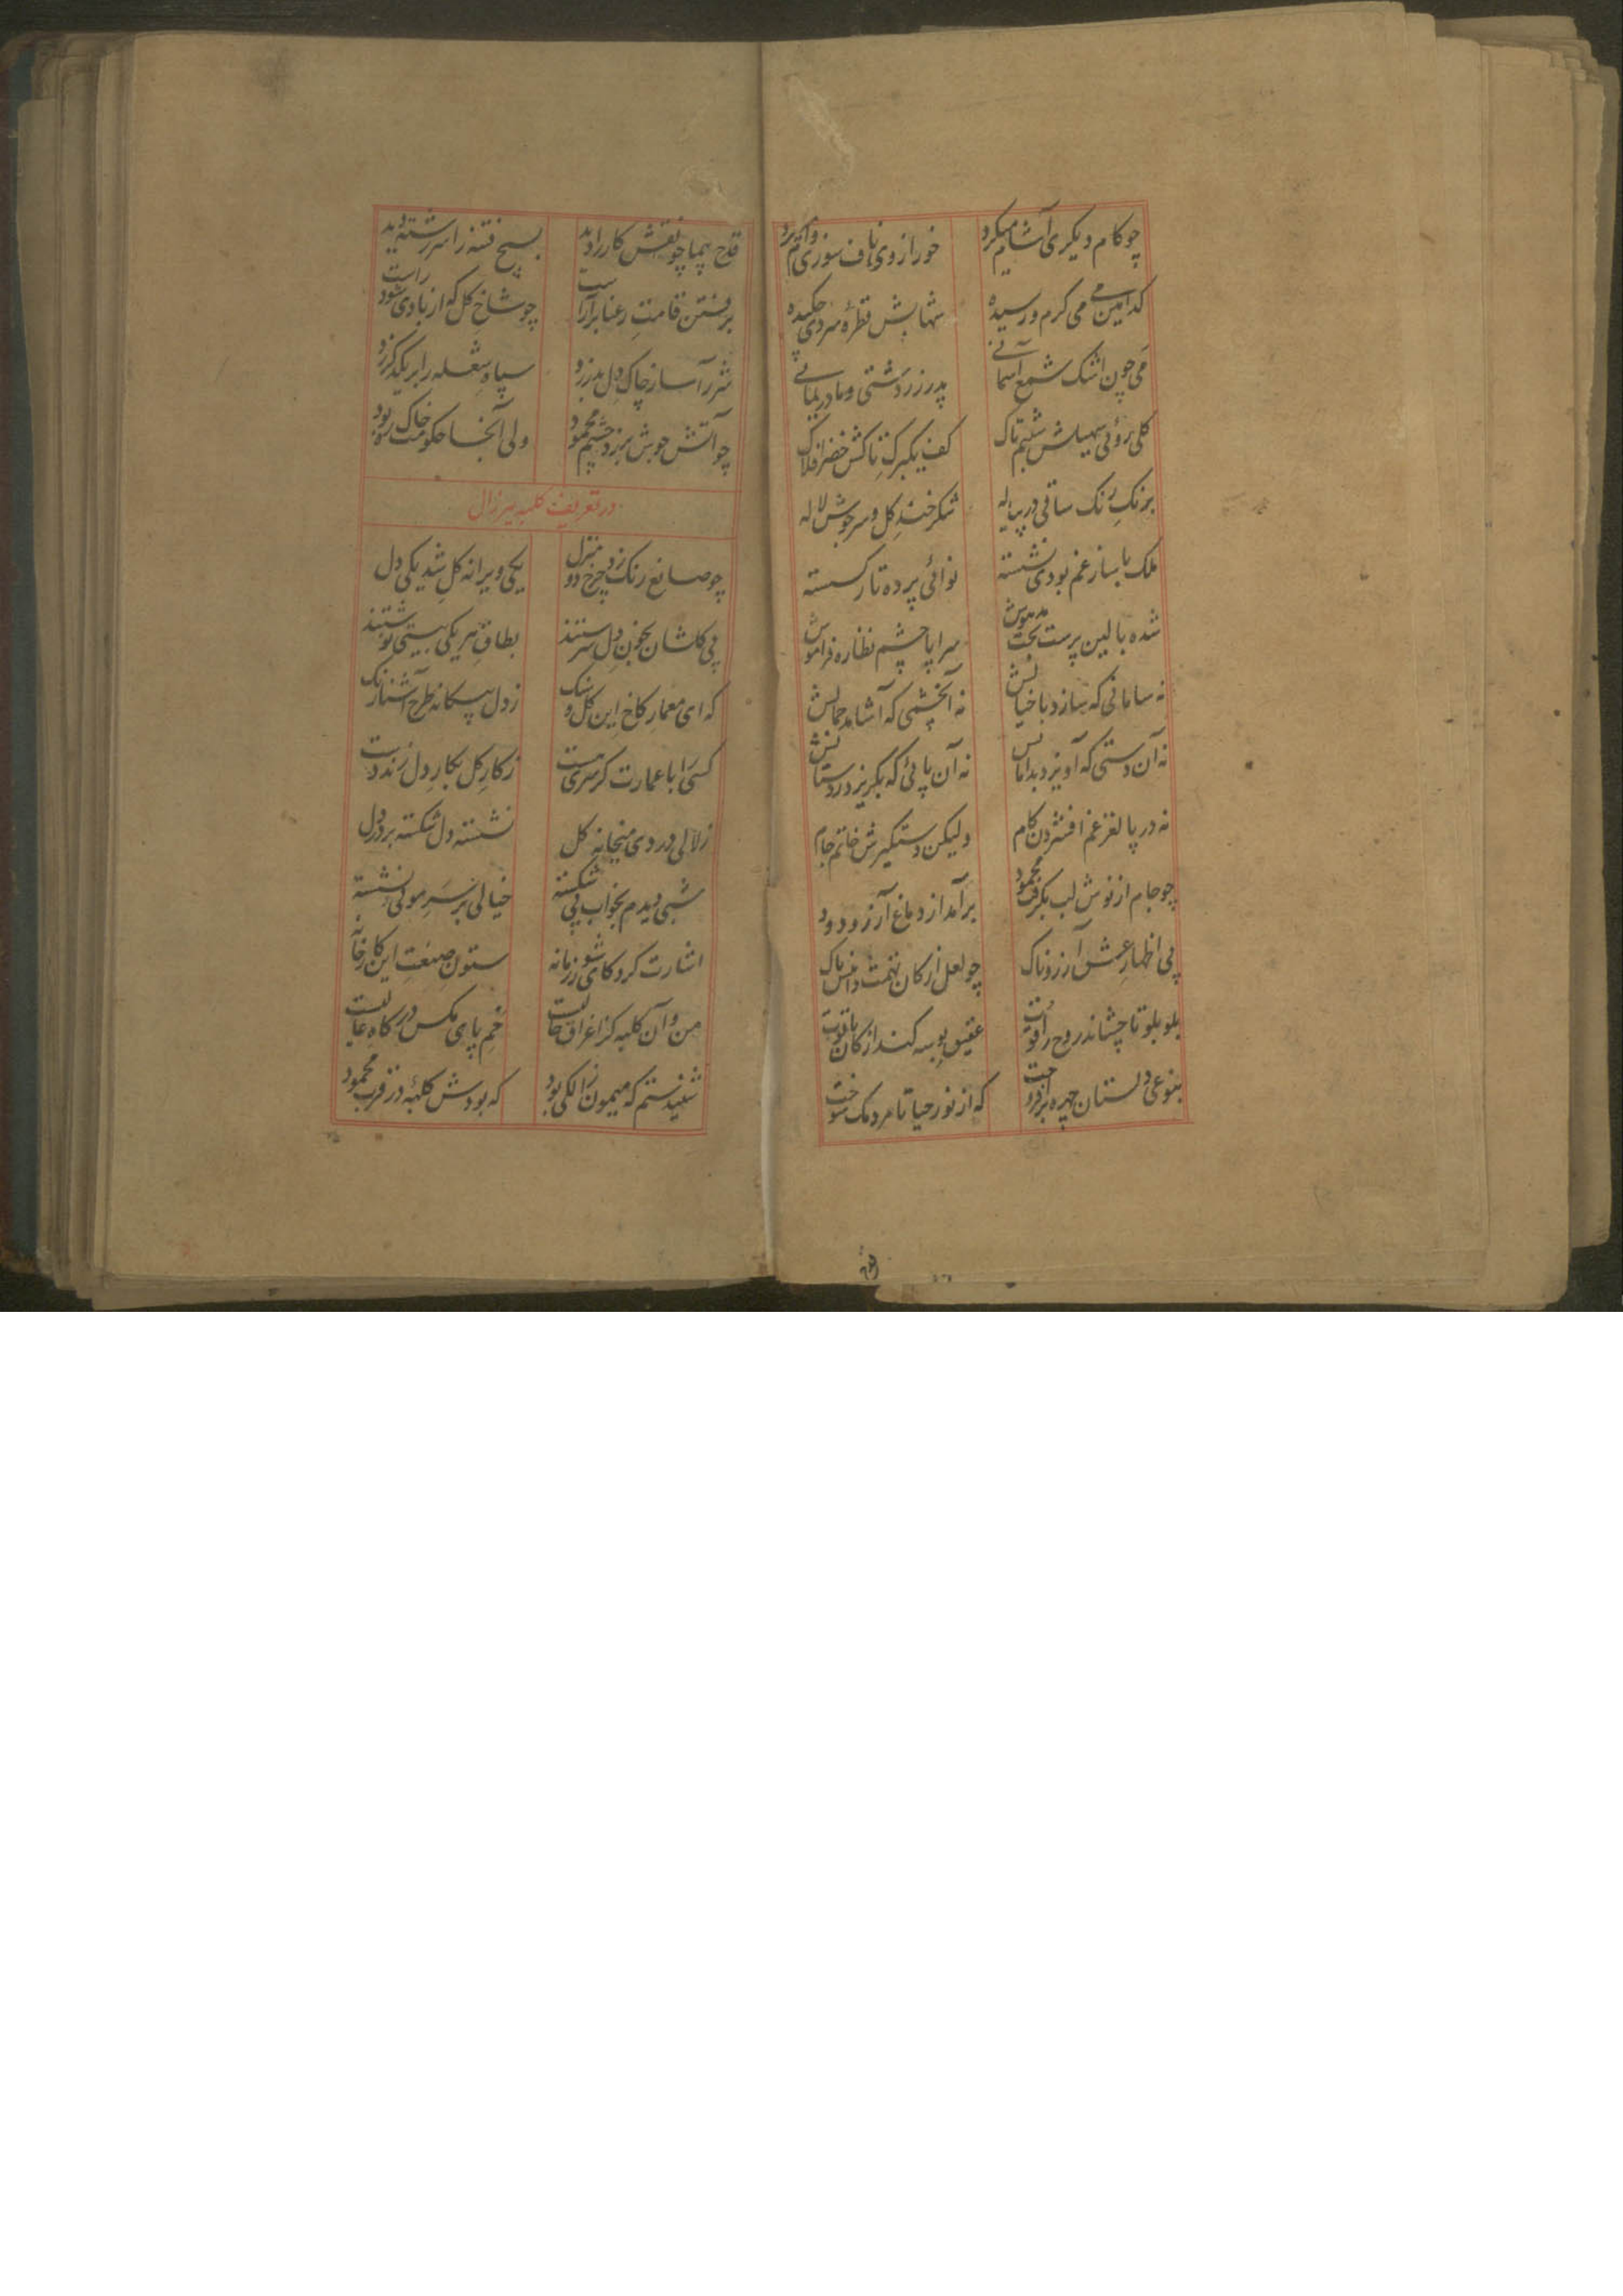 چو کام دیکری آشام میکرد خور از وی ناف سوزی وام میکرد
کدامین می می کرم و رسیده شهابش قطرهٔ سردی چکیده
می چون اشک شمع آسمانی پدر زردشتی و مادر یمانی
کلی روئی سهیلش شبنم تاک کف یکبرک تاکش خضر افلاک
برنک رنک ساقی در پیاله شکرخند کل و سرجوش لاله
ملک با ساز غم بودی نشسته نوائی پرده تار کسسته
شده بالین پرست بخت مدهوش سراپا چشم نظاره فراموش
نه سامانی که سازد با خیالش نه آنچشمی که آشامد جمالش
نه آن دستی که آویزد بدامانش نه آن پائی که بکریزد ز دستانش
نه در پا لغز غم افشردن کام ولیکن دستکیرش خاتم جام
چو جام از نوش لب بکرفت محمود برآمد از دماغ آرزو دود
پی اظهار عشق آرزوناک چو لعل از کان تهمت دامنش پاک
بلو بلو تا چشاند روح را قوت عقیق بوسه کند از کان یاقوت
بنوعی دلستان چهره برافروخت که از نور حیا تا مردمک سوخت
قدح پیما چو نقش کار را دید بسیج فتنه را سررشته دید
برفتن قامت رعنا برآراست چو شاخ کل که از بادی شود راست
شررآسا ز چاک دل بدر زد سپاه شعله را بر یکدکر زد
چو آتش جوش بر زد چشم محمود ولی آنجا حکومت خاک بود
در تعریف کلبه پیرزال
چو صانع رنک زد و چرخ دو منزل یکی ویرانه کل شد یکی دل
پی کاشان بخون دل سرشتند بطاق هر یکی بیتی نوشتند
که ای معمار کاخ این کل و سنک ز دل بیکانه طرح آشنا رنک
کسی را با عمارت کر سری هست ز کار کل بکار دل زند دست
زلالی دردی میخانه کل نشسته دل شکسته بر در دل
شبی دیدم بخواب پی شکسته خیالی بر سر موئی نشسته
اشارت کرد کای شور زمانه ستون صنعت این کارخانه
من و آن کلبه کز اغراق حالیست خم پای مکس درکاه عالیست
شنیدستم که میمون زالکی بود که بودش کلبهٔ در قرب محمود